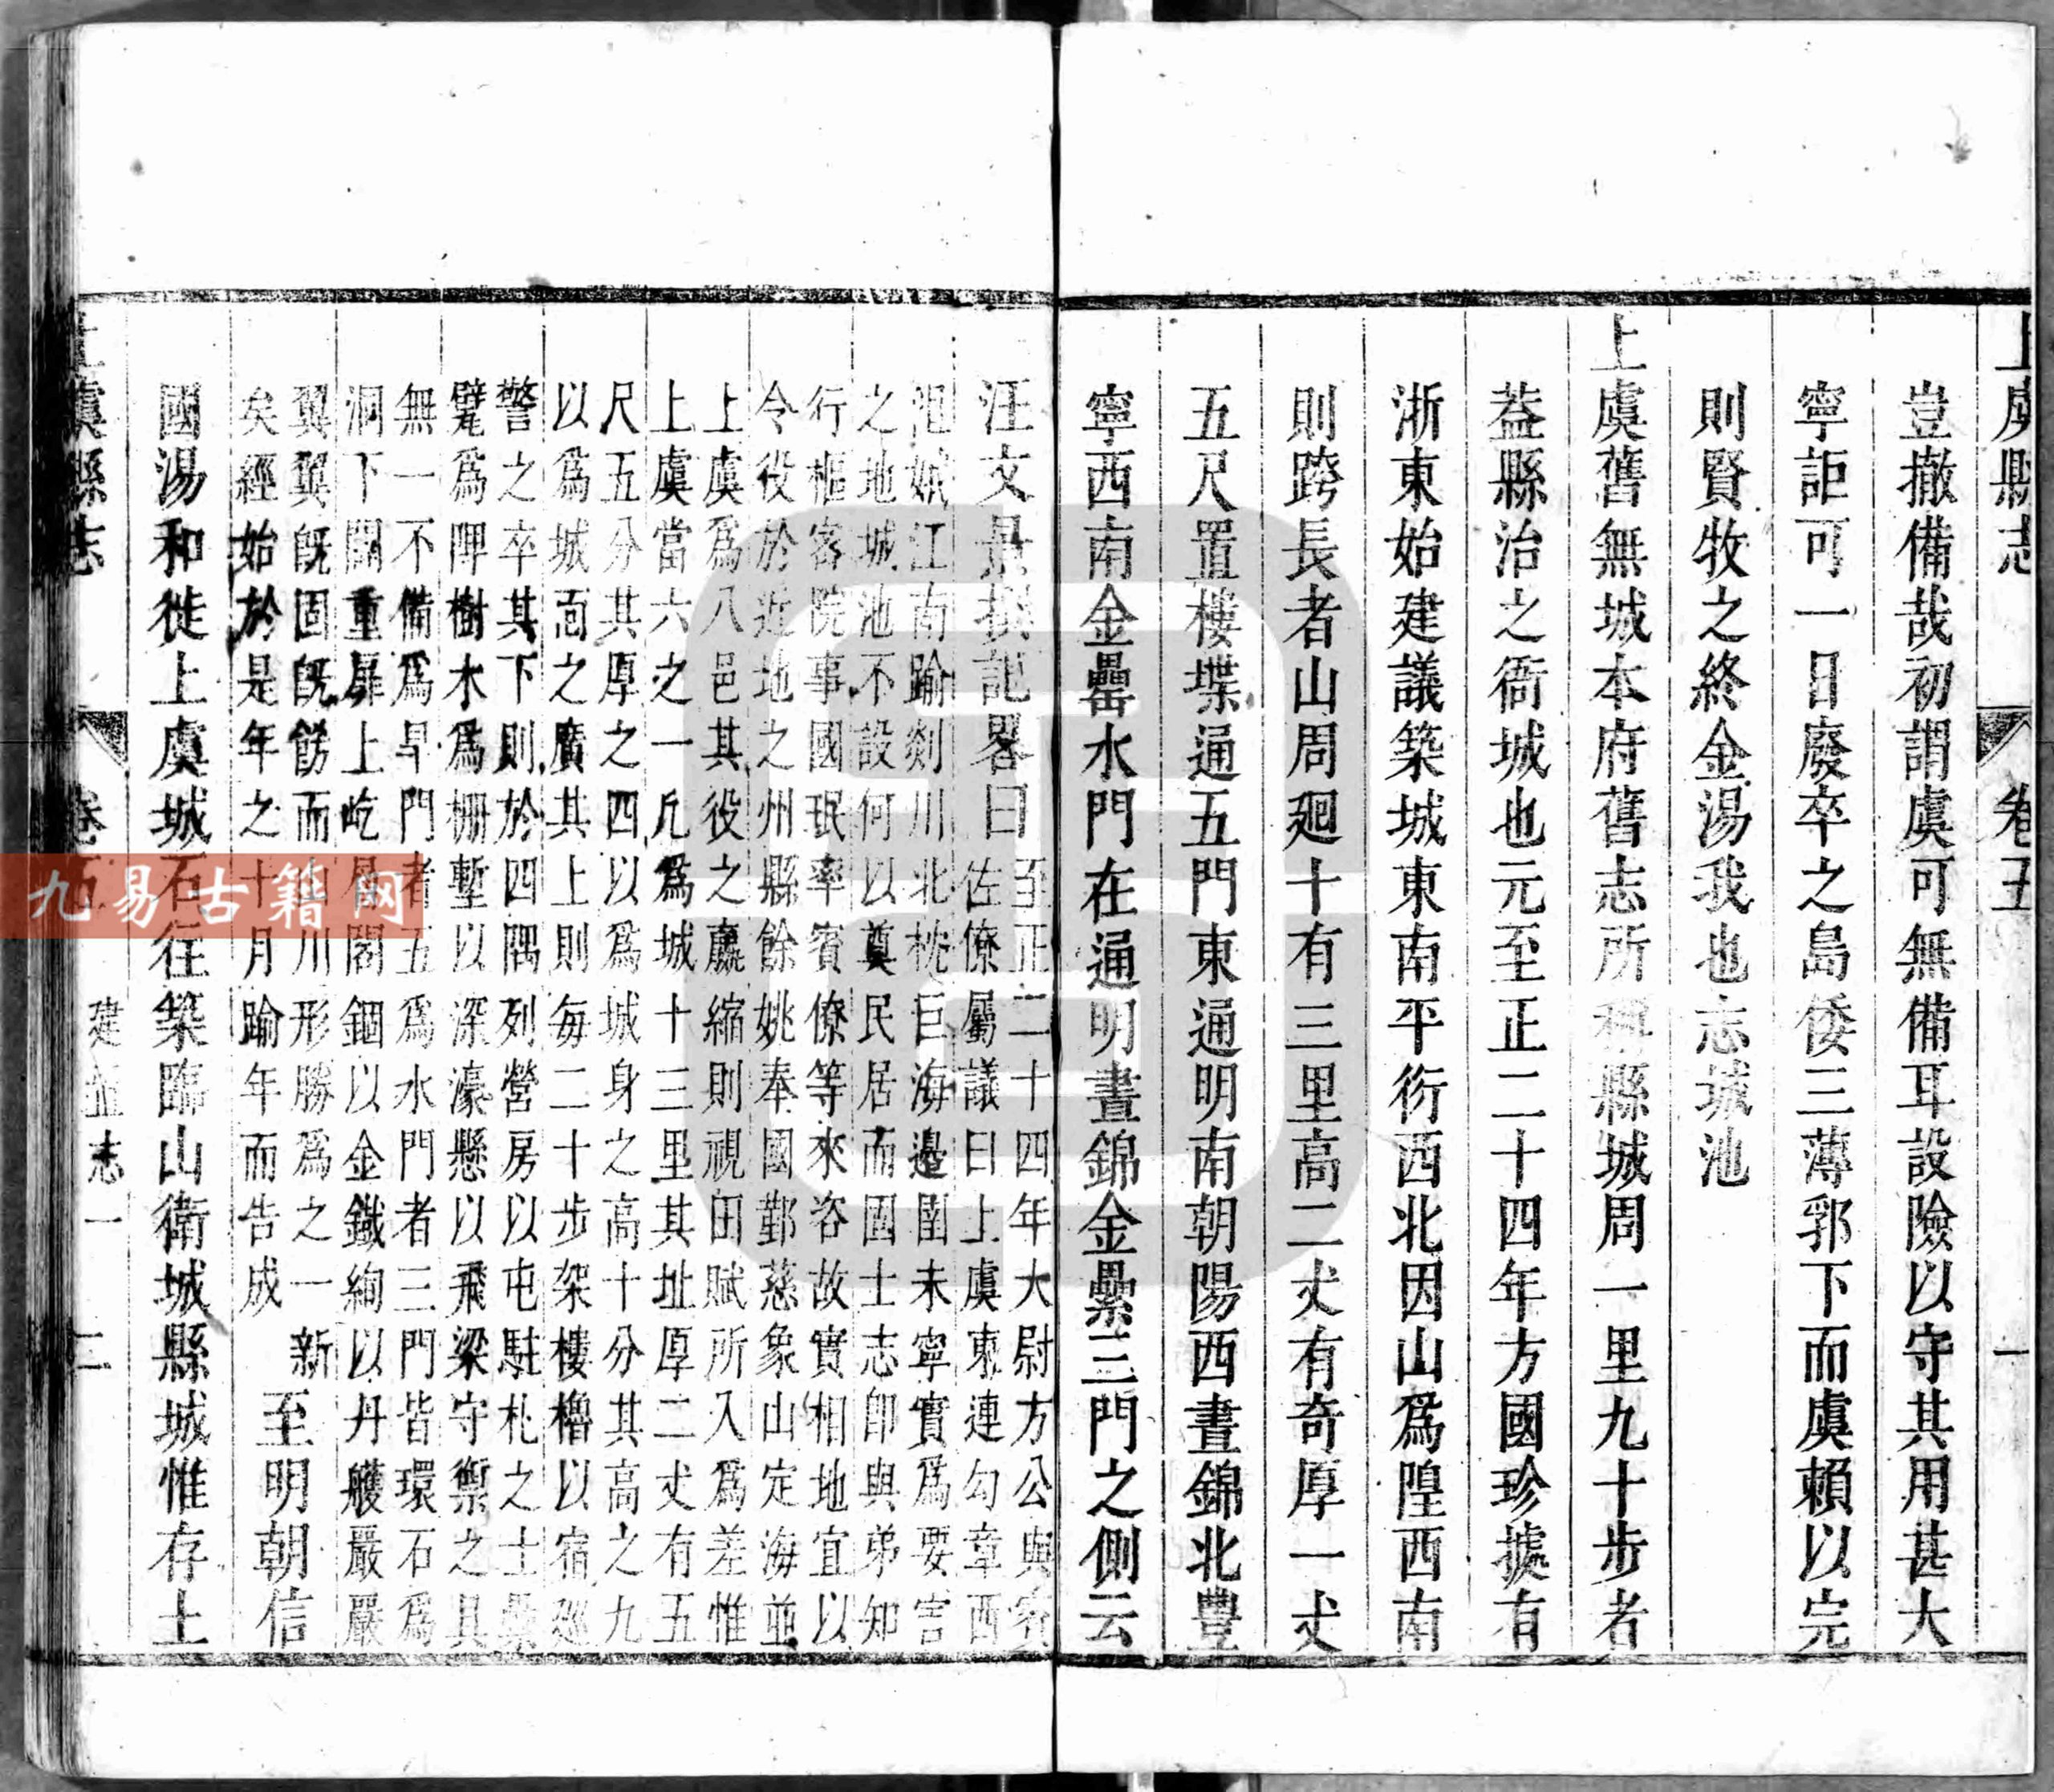 上虞縣志 卷五 一
豈撤備哉初謂虞可無備耳設險以守其用甚大
寧詎可一日廢卒之島倭三薄郛下而虞賴以完
則賢牧之終金湯我也志城池
上虞舊無城本府舊志所稱縣城周一里九十步者
葢縣治之衙城也元至正二十四年方國珍據有
浙東始建議築城東南平衍西北因山爲隍西南
則跨長者山周廻十有三里高二丈有奇厚一丈
五尺置樓堞通五門東通明南朝陽西晝錦北豐
寧西南金罍水門在通明晝錦金罍三門之側云
汪文 記畧曰
至正二十四年大尉方公與賓
佐僚屬議曰上虞東連勾章西
江南踰剡川北枕巨海邊圉未寧實爲要害
之地城池不設何以奠民居而固士志卽與弟知
行樞密院事國珉率賓僚等來咨故實相地宜以
令役於近地之州縣餘姚奉國鄞慈象山定海並
上虞爲八邑其役之贏縮則視田賦所入爲差惟
上虞當六之一凡爲城十三里其址厚二丈有五
尺五分其厚之四以爲城身之高十分其高之九
以爲城面之廣其上則每二十步架樓櫓以宿廵
警之卒其下則於四隅列營房以屯駐札之士
甓爲陴樹木爲栅塹以深濠懸以飛梁守禦之具
無一不備爲旱門者五爲水門者三門皆環石爲
洞下闢重扉上屹層閣錮以金鐵絢以丹艧嚴嚴
翼翼旣固旣飭而山川形勝爲之一新
矣經始於是年之十月踰年而告成
至明朝信
國湯和徙上虞城石往築臨山衛城縣城惟存土
上虞縣志 卷五 建置志一 二
九易古籍网